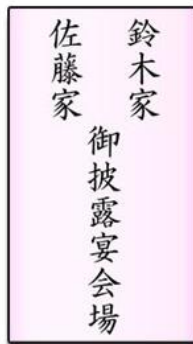 鈴木家
佐藤家
御披露宴会場